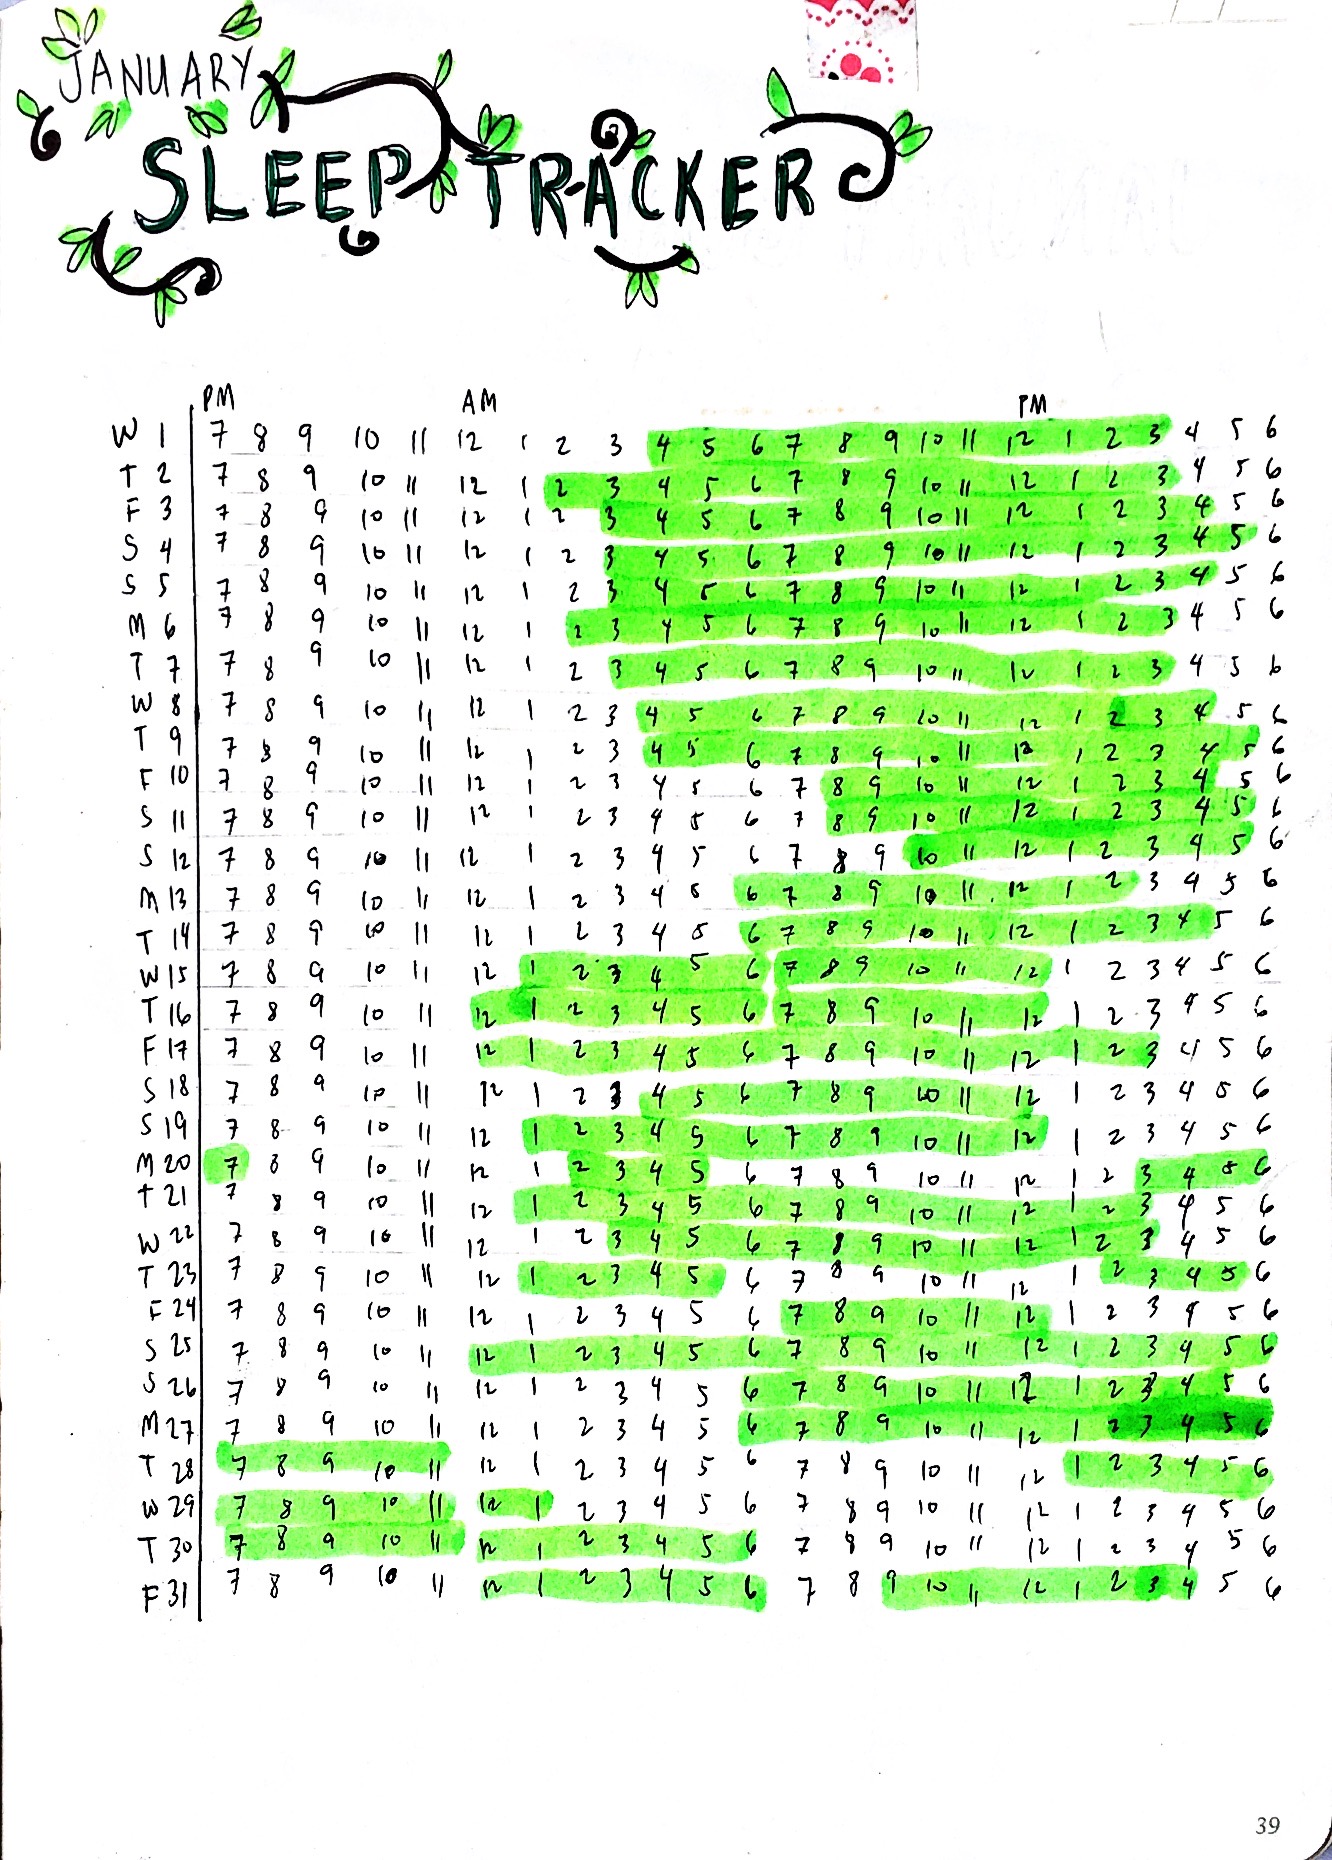 JANUARY
SLEEP TRACKER
PM AM PM
W 1 7 8 9 10 11 12 1 2 3 4 5 6 7 8 9 10 11 12 1 2 3 4 5 6
T 2 7 8 9 10 11 12 1 2 3 4 5 6 7 8 9 10 11 12 1 2 3 4 5 6
F 3 7 8 9 10 11 12 1 2 3 4 5 6 7 8 9 10 11 12 1 2 3 4 5 6
S 4 7 8 9 10 11 12 1 2 3 4 5 6 7 8 9 10 11 12 1 2 3 4 5 6
S 5 7 8 9 10 11 12 1 2 3 4 5 6 7 8 9 10 11 12 1 2 3 4 5 6
M 6 7 8 9 10 11 12 1 2 3 4 5 6 7 8 9 10 11 12 1 2 3 4 5 6
T 7 7 8 9 10 11 12 1 2 3 4 5 6 7 8 9 10 11 12 1 2 3 4 5 6
W 8 7 8 9 10 11 12 1 2 3 4 5 6 7 8 9 10 11 12 1 2 3 4 5 6
T 9 7 8 9 10 11 12 1 2 3 4 5 6 7 8 9 10 11 12 1 2 3 4 5 6
F 10 7 8 9 10 11 12 1 2 3 4 5 6 7 8 9 10 11 12 1 2 3 4 5 6
S 11 7 8 9 10 11 12 1 2 3 4 5 6 7 8 9 10 11 12 1 2 3 4 5 6
S 12 7 8 9 10 11 12 1 2 3 4 5 6 7 8 9 10 11 12 1 2 3 4 5 6
M 13 7 8 9 10 11 12 1 2 3 4 5 6 7 8 9 10 11 12 1 2 3 4 5 6
T 14 7 8 9 10 11 12 1 2 3 4 5 6 7 8 9 10 11 12 1 2 3 4 5 6
W 15 7 8 9 10 11 12 1 2 3 4 5 6 7 8 9 10 11 12 1 2 3 4 5 6
T 16 7 8 9 10 11 12 1 2 3 4 5 6 7 8 9 10 11 12 1 2 3 4 5 6
F 17 7 8 9 10 11 12 1 2 3 4 5 6 7 8 9 10 11 12 1 2 3 4 5 6
S 18 7 8 9 10 11 12 1 2 3 4 5 6 7 8 9 10 11 12 1 2 3 4 5 6
S 19 7 8 9 10 11 12 1 2 3 4 5 6 7 8 9 10 11 12 1 2 3 4 5 6
M 20 7 8 9 10 11 12 1 2 3 4 5 6 7 8 9 10 11 12 1 2 3 4 5 6
T 21 7 8 9 10 11 12 1 2 3 4 5 6 7 8 9 10 11 12 1 2 3 4 5 6
W 22 7 8 9 10 11 12 1 2 3 4 5 6 7 8 9 10 11 12 1 2 3 4 5 6
T 23 7 8 9 10 11 12 1 2 3 4 5 6 7 8 9 10 11 12 1 2 3 4 5 6
F 24 7 8 9 10 11 12 1 2 3 4 5 6 7 8 9 10 11 12 1 2 3 4 5 6
S 25 7 8 9 10 11 12 1 2 3 4 5 6 7 8 9 10 11 12 1 2 3 4 5 6
S 26 7 8 9 10 11 12 1 2 3 4 5 6 7 8 9 10 11 12 1 2 3 4 5 6
M 27 7 8 9 10 11 12 1 2 3 4 5 6 7 8 9 10 11 12 1 2 3 4 5 6
T 28 7 8 9 10 11 12 1 2 3 4 5 6 7 8 9 10 11 12 1 2 3 4 5 6
W 29 7 8 9 10 11 12 1 2 3 4 5 6 7 8 9 10 11 12 1 2 3 4 5 6
T 30 7 8 9 10 11 12 1 2 3 4 5 6 7 8 9 10 11 12 1 2 3 4 5 6
F 31 7 8 9 10 11 12 1 2 3 4 5 6 7 8 9 10 11 12 1 2 3 4 5 6
39